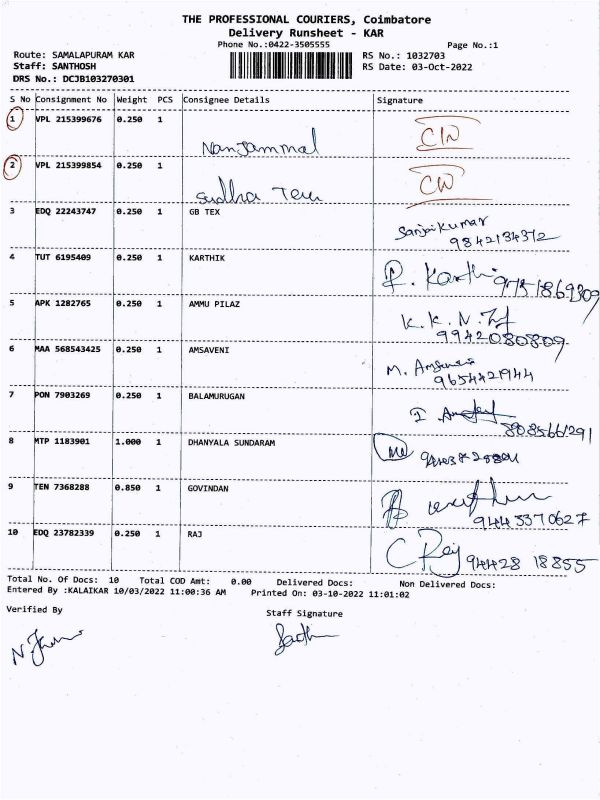 THE PROFESSIONAL COURIERS, Coimbatore
Delivery Runsheet - KAR
Phone No.:0422-3505555 Page No.:1
Route: SAMALAPURAM KAR RS No.: 1032703
Staff: SANTHOSH RS Date: 03-Oct-2022
DRS No.: DCJB103270301
S No Consignment No Weight PCS Consignee Details Signature
1 VPL 215399676 0.250 1
Nanjammal
2 VPL 215399854 0.250 1
Sudha Tex
3 EDQ 22243747 0.250 1 GB TEX
Sanjaikumar
9842134372
4 TUT 6195409 0.250 1 KARTHIK
5 APK 1282765 0.250 1 AMMU PILAZ
K. K. N.
9942080809
6 MAA 568543425 0.250 1 AMSAVENI
M. Amsaveni
9654421944
7 PON 7903269 0.250 1 BALAMURUGAN
8 MTP 1183901 1.000 1 DHANYALA SUNDARAM
9 TEN 7368288 0.850 1 GOVINDAN
9443370627
10 EDQ 23782339 0.250 1 RAJ
C Raj 94428 18855
Total No. Of Docs: 10 Total COD Amt: 0.00 Delivered Docs: Non Delivered Docs:
Entered By :KALAIKAR 10/03/2022 11:00:36 AM Printed On: 03-10-2022 11:01:02
Verified By Staff Signature